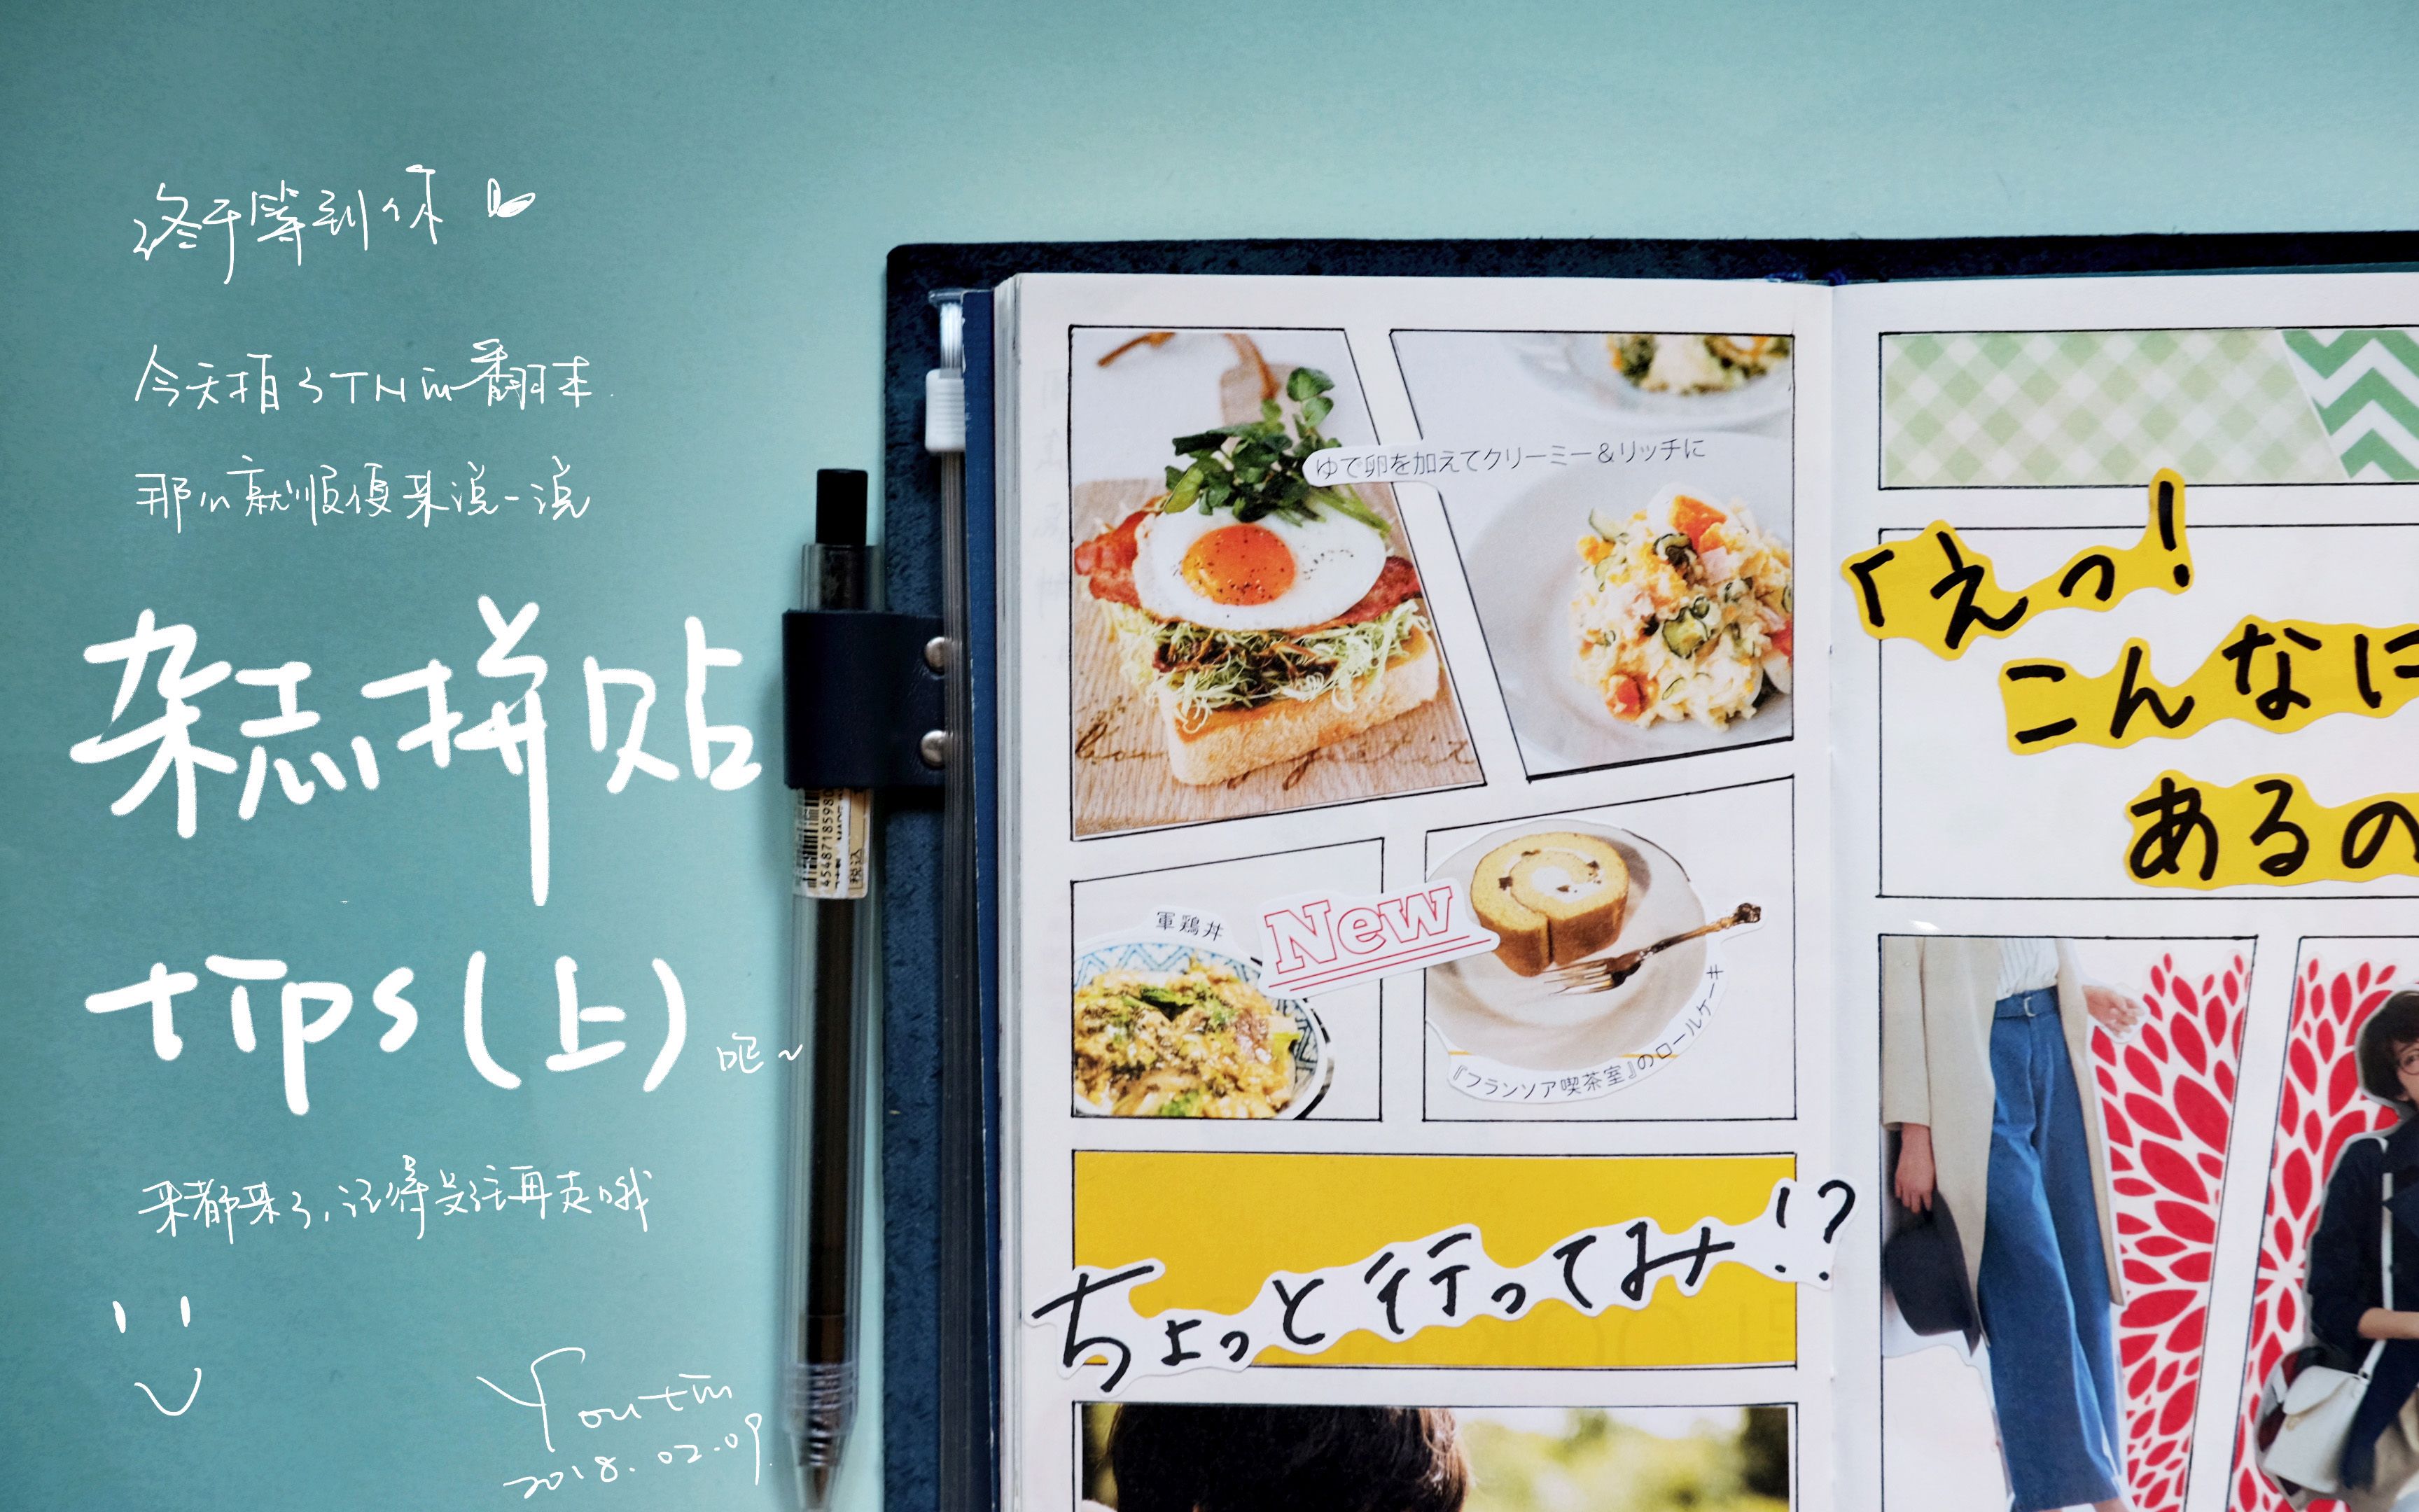 终于等到你
今天拍了TN的翻本
那么就顺便来说一说
杂志拼贴
tips(上)
呢~
来都来了,记得关注再走哦
Youtiu
2018.02.09
ゆで卵を加えてクリーミー&リッチに
軍鶏丼
New
『フランソア喫茶室』のロールケーキ
ちょっと行ってみ!?
「えっ!
こんなに
あるの
4548718598
税込